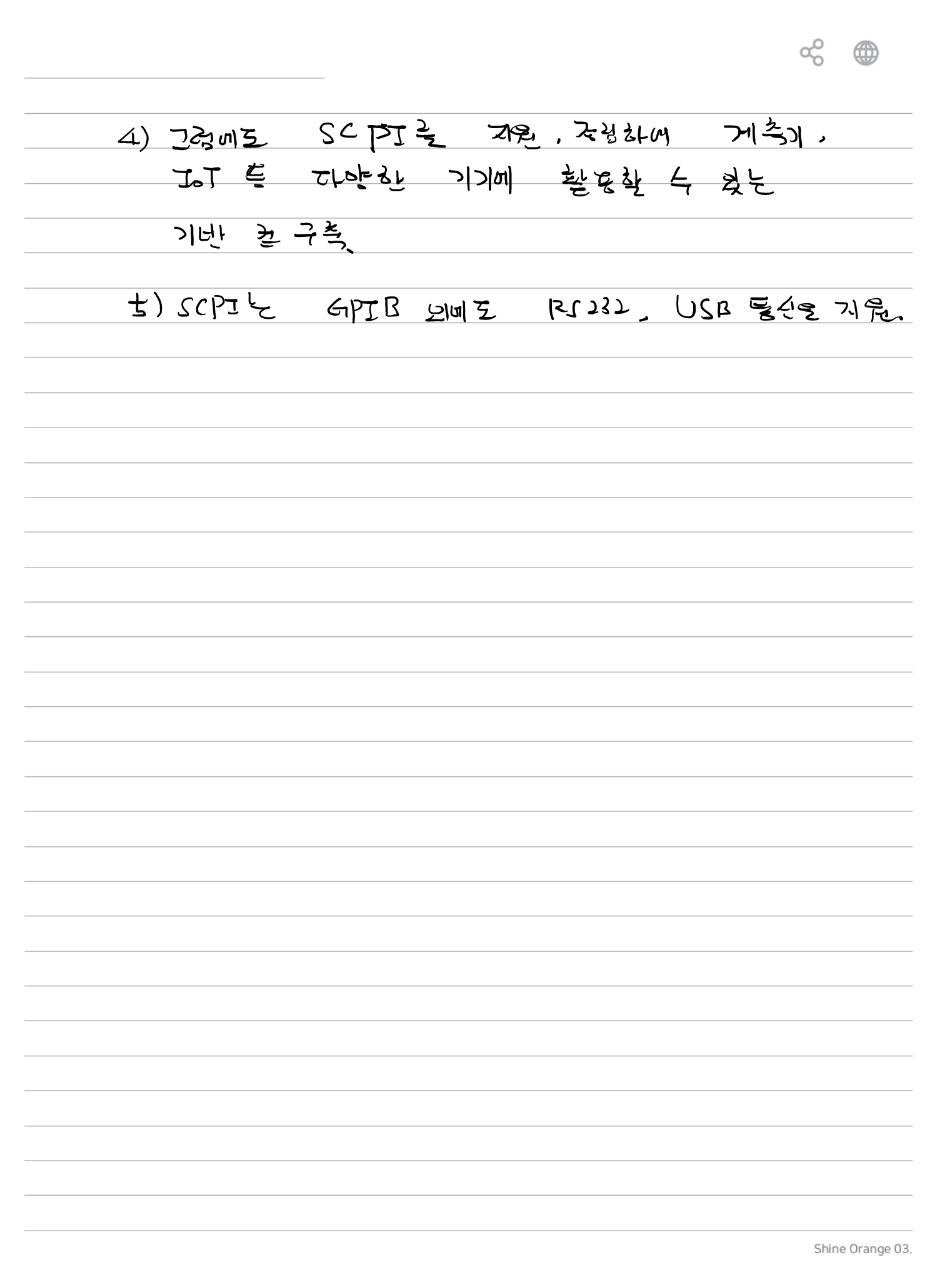 4) 그럼에도 SCPI를 지원, 정립하여 계측기,
IoT 등 다양한 기기에 활용할 수 있는
기반을 구축
5) SCPI는 GPIB 외에도 RS232, USB 통신을 지원.
Shine Orange 03.